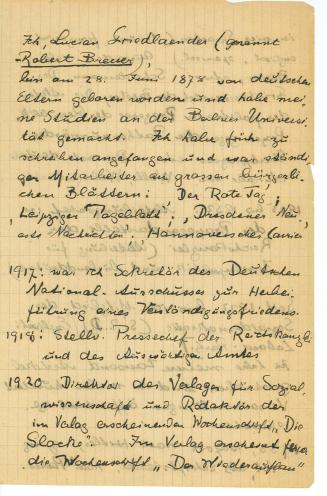 Ich, Lucian Friedlaender (genannt
Robert Breuer),
bin am 28. Juni 1878 von deutschen
Eltern geboren worden und habe mei-
ne Studien an der Berliner Universi-
tät gemacht. Ich habe früh zu
schreiben angefangen und war ständi-
ger Mitarbeiter an grossen bürgerli-
chen Blättern: „Der Rote Tag“,
„Leipziger Tageblatt“, „Dresdener Neu-
este Nachrichten“, Hannoverscher Courier.
1917: war ich Sekretär des Deutschen
National-Ausschusses zur Herbei-
führung eines Verständigungsfriedens.
1918: Stellv. Pressechef der Reichskanzlei
und des Auswärtigen Amtes
1920 Direktor des Verlages für Sozial-
wissenschaft und Redaktör der
im Verlag erscheinenden Wochenschrift „Die
Glocke“. Im Verlag erscheint ferner
die Wochenschrift „Der Wiederaufbau“